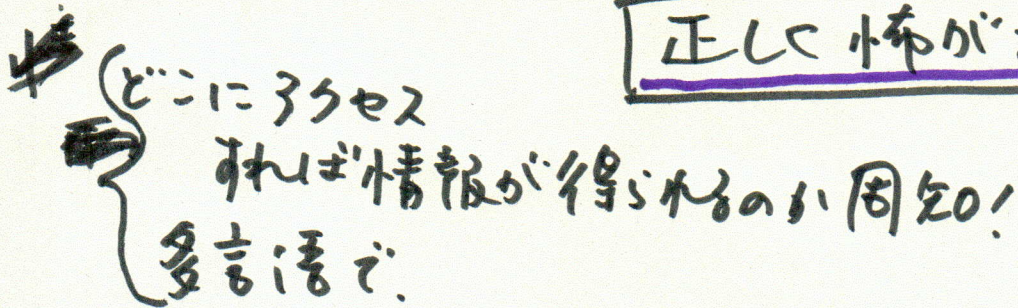 正しく怖が
どこにアクセス
すれば情報が得られるのか周知!
多言語で.